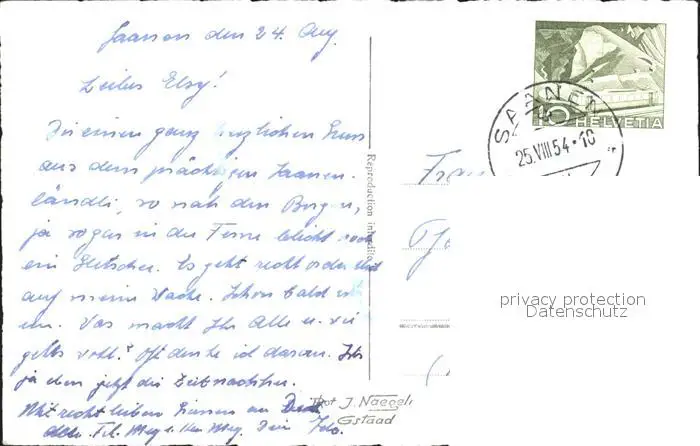 Saanen den 24. Aug.
Liebes Elsy!
Dir einen ganz herzlichen Gruss
aus dem prächtigen Saanen-
ländli, so nah den Bergen,
ja sogar in der Ferne leicht noch
ein Gletscher. Es geht recht ordentlich
auf meine Woche. Schon bald
um. Was macht Ihr Alle u. wie
gehts wohl? Oft denke ich daran.
ja eben jetzt die
Mit recht lieben Grüssen an
alle. Frl. Dein
Reproduction interdite
Phot J. Naegeli
Gstaad
SAANEN
25.VIII.54-10
HELVETIA
Frau
privacy protection
Datenschutz